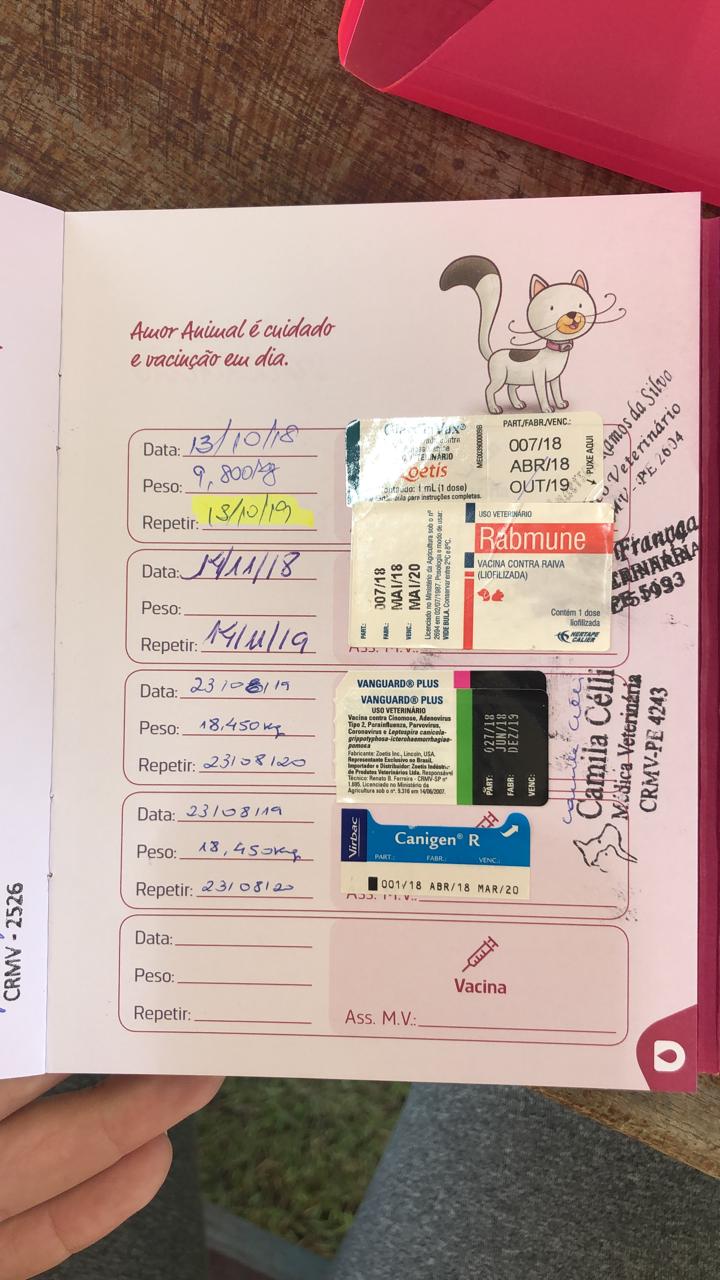 Amor Animal é cuidado
e vacinção em dia.
Data: 13/10/18
Peso: 9,800kg
Repetir: 13/10/19
Zoetis
Conteúdo: 1 mL (1 dose)
para instruções completas.
PART./FABR./VENC.:
007/18
ABR/18
OUT/19
PUXE AQUI
Ramos da Silva
Veterinário
Data: 14/11/18
Peso:
Repetir: 14/11/19
007/18
MAI/18
MAI/20
PART.:
FABR.:
VENC.:
Licenciado no Ministério da Agricultura sob o nº
2694 em 02/07/1987. Posologia e modo de usar:
VIDE BULA. Conservar entre 2ºC e 8ºC.
USO VETERINÁRIO
Rabmune
VACINA CONTRA RAIVA
(LIOFILIZADA)
Contém 1 dose
liofilizada
HERTAPE
CALIER
França
Data: 23/08/19
Peso: 18,450kg
Repetir: 23/08/20
VANGUARD® PLUS
VANGUARD® PLUS
USO VETERINÁRIO
Vacina contra Cinomose, Adenovírus
Tipo 2, Parainfluenza, Parvovírus,
Coronavírus e Leptospira canicola-
grippotyphosa-icterohaemorrhagiae-
pomona
Fabricante: Zoetis Inc., Lincoln, USA.
Representante Exclusivo no Brasil,
Importador e Distribuidor: Zoetis Indústria
de Produtos Veterinários Ltda. Responsável
Técnico: Renato B. Ferreira - CRMV-SP nº
Licenciado no Ministério da
Agricultura sob o nº. 9.316 em 14/06/2007.
PART:
FABR:
VENC:
027/18
JUN/18
DEZ/19
Camila Célli
Médica Veterinária
CRMV-PE 4243
Data: 23/08/19
Peso: 18,450kg
Repetir: 23/08/20
Virbac
Canigen® R
PART.: FABR.: VENC.:
001/18 ABR/18 MAR/20
Data:
Peso:
Repetir:
Vacina
Ass. M.V.:
CRMV - 2526